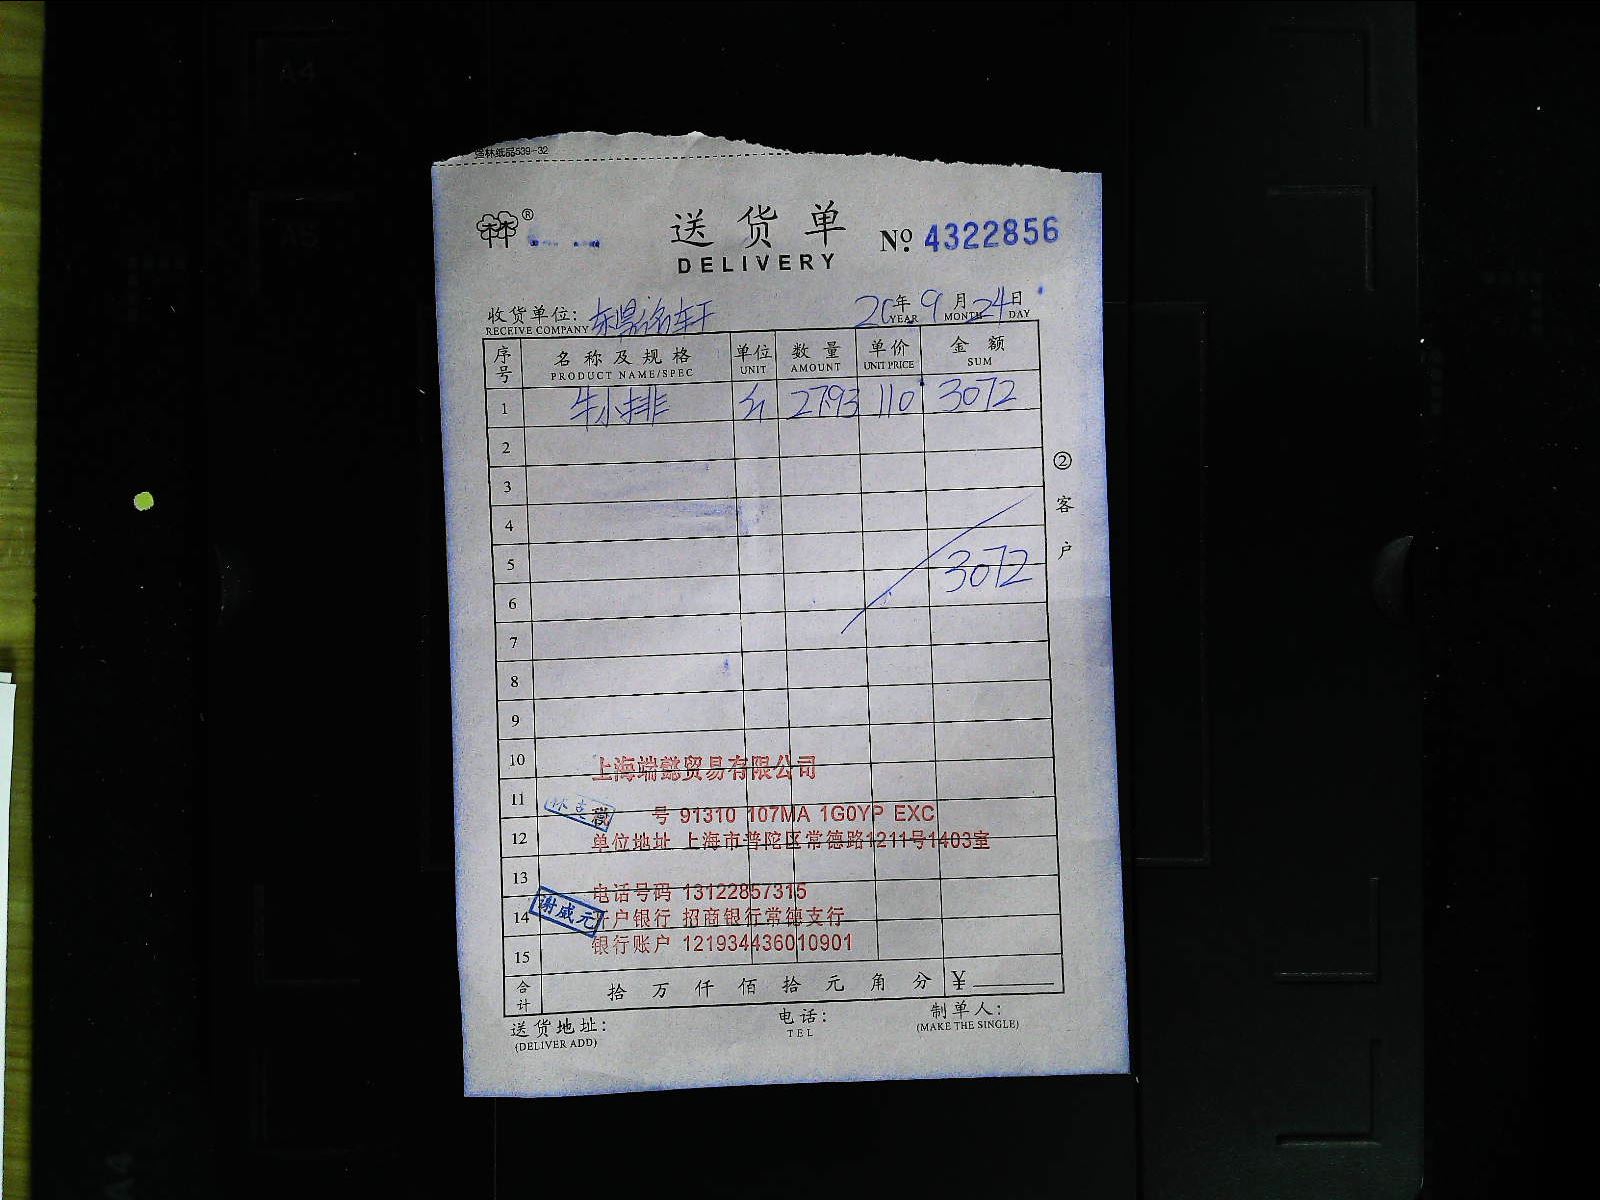 林纸品539-32
送货单
DELIVERY
№ 4322856
收货单位:
RECEIVE COMPANY
20年9月24日
YEAR MONTH DAY
序号 名称及规格 单位 数量 单价 金额
PRODUCT NAME/SPEC UNIT AMOUNT UNIT PRICE SUM
1 牛小排 斤 27.93 110 3072
2
3
4
5 3072
6
7
8
9
10
11
12
13
14
15
上海端懿贸易有限公司
号 91310 107MA 1G0YP EXC
单位地址 上海市普陀区常德路1211号1403室
电话号码 13122857315
谢威元
开户银行 招商银行常德支行
银行账户 121934436010901
合计 拾万仟佰拾元角分 ¥
送货地址: 电话: 制单人:
(DELIVER ADD) TEL (MAKE THE SINGLE)
②客户